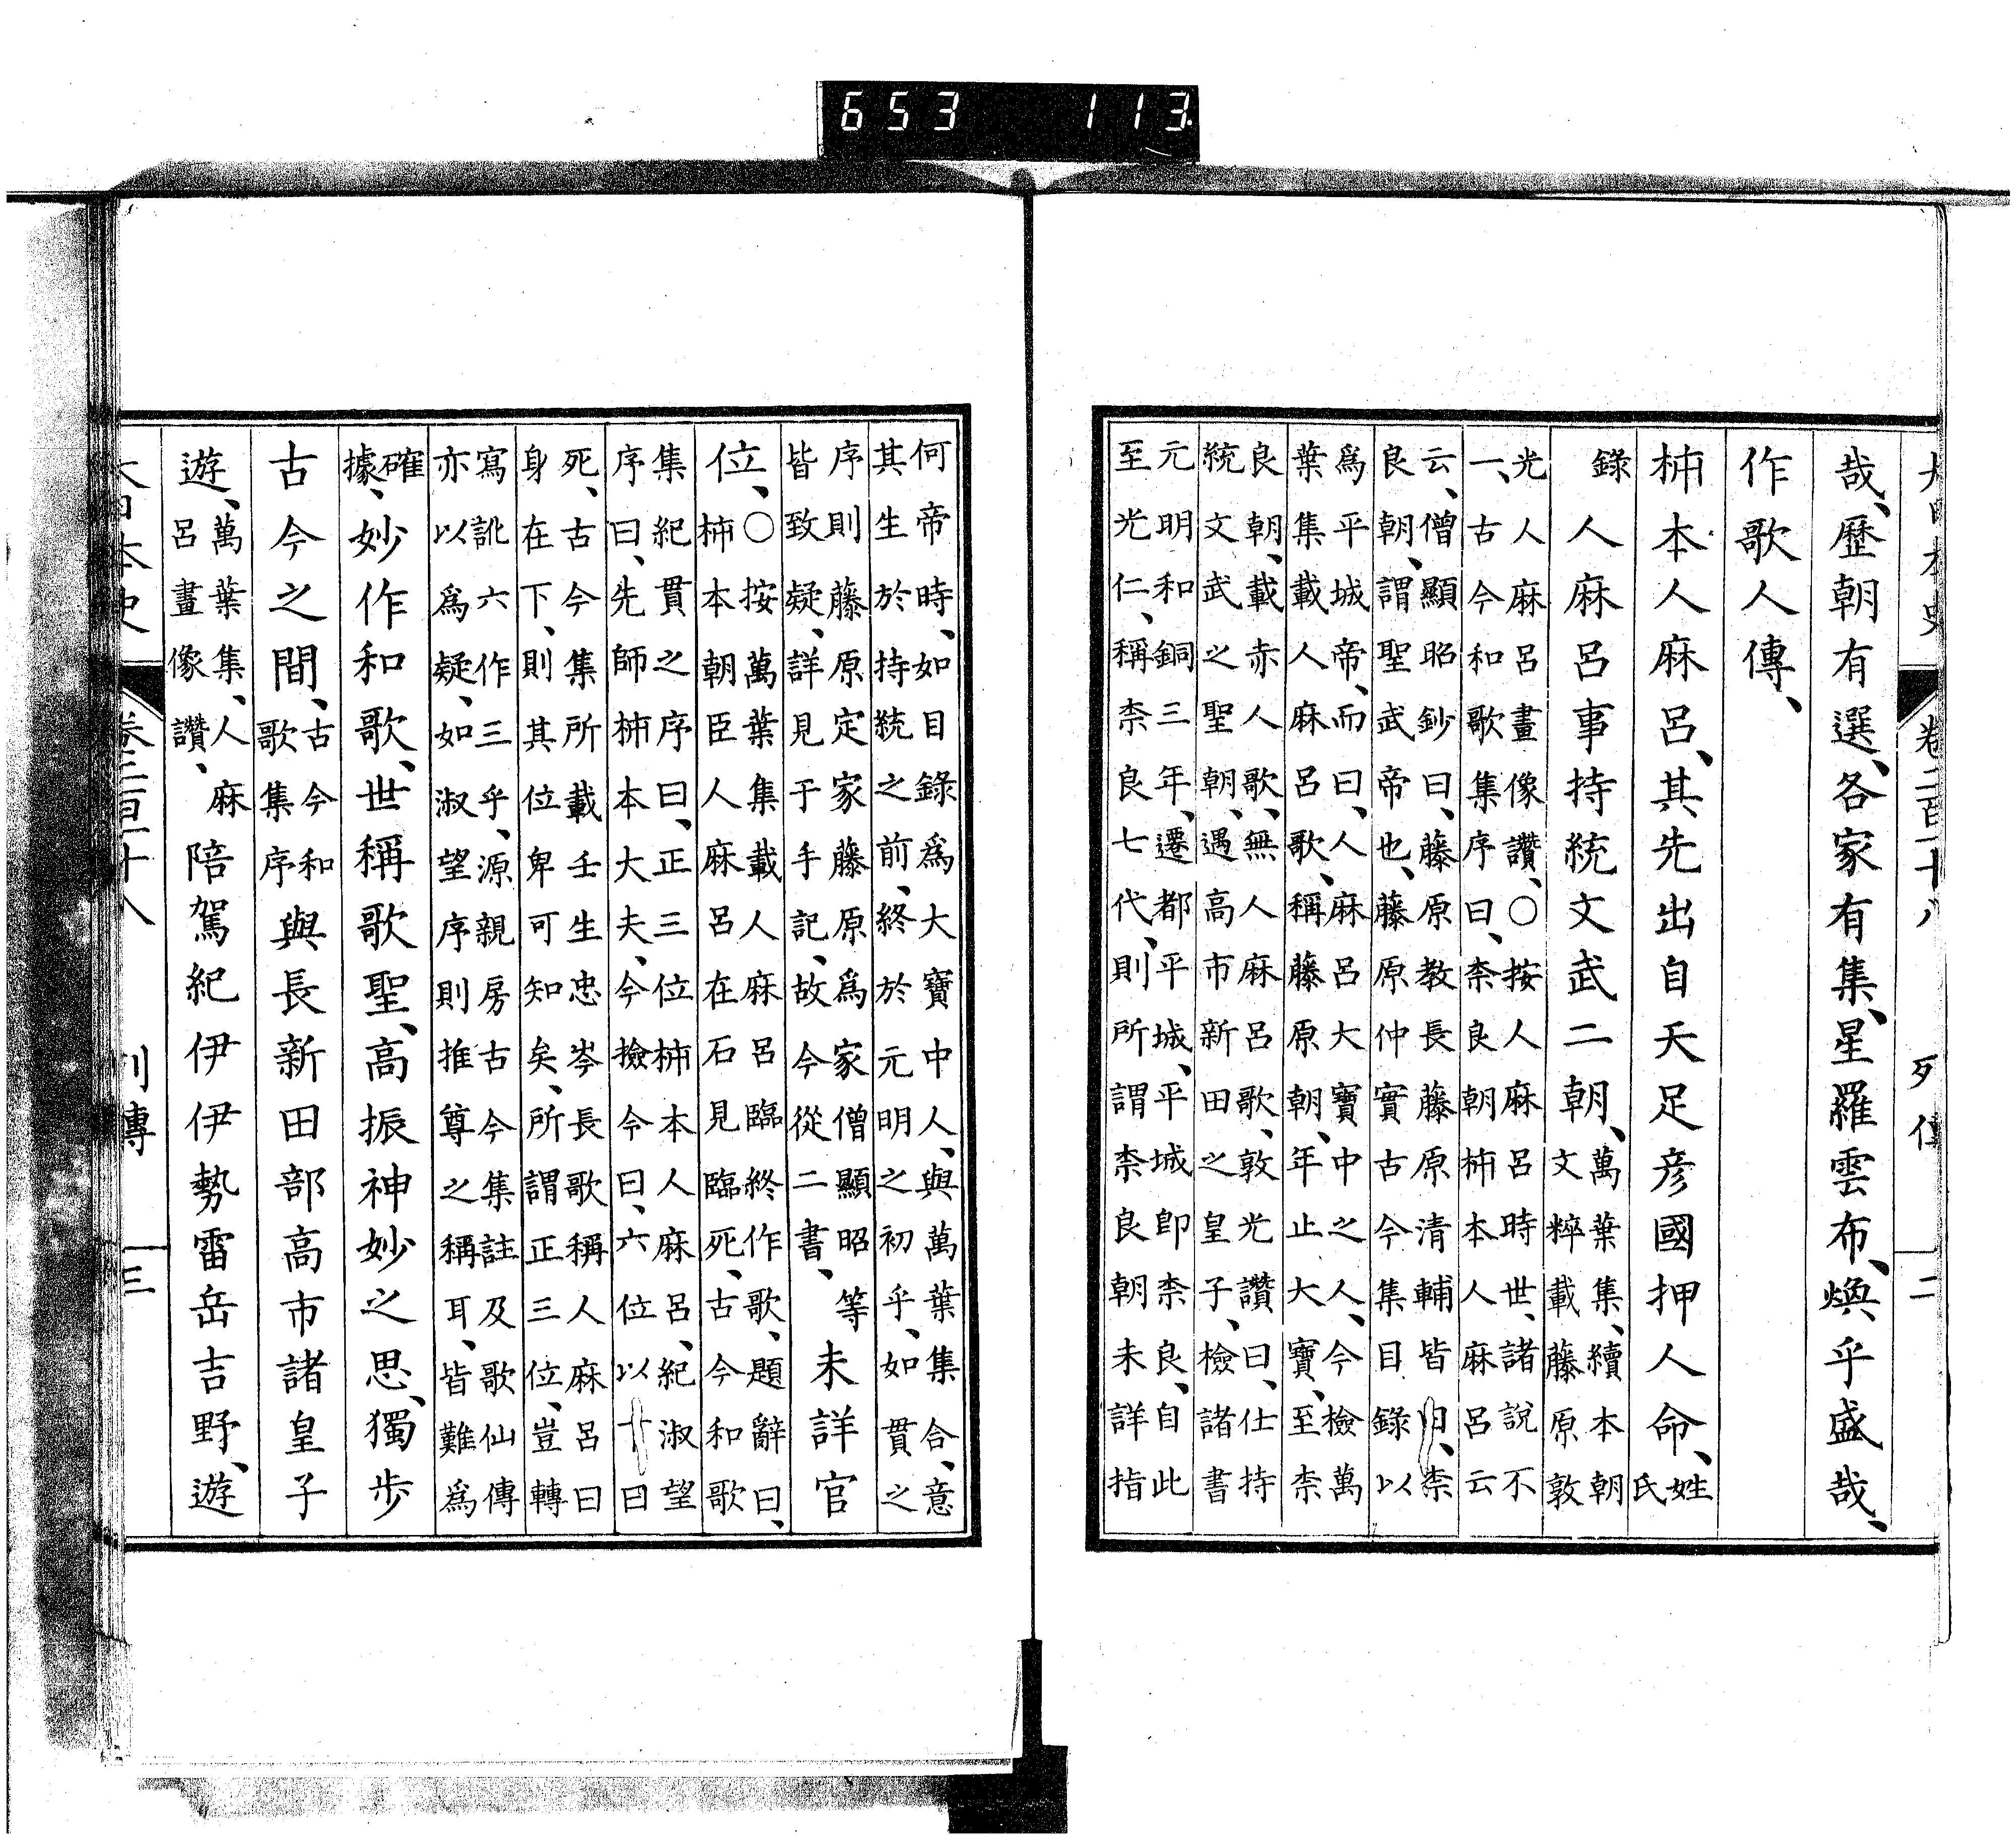 653 113
哉、歷朝有選、各家有集、星羅雲布、煥乎盛哉、
作歌人傳、
柹本人麻呂、其先出自天足彦國押人命、姓
氏
錄
人麻呂事持統文武二朝、萬葉集、續本朝
文粹載藤原敦
光人麻呂畫像讚、○按人麻呂時世、諸說不
一、古今和歌集序曰、柰良朝柹本人麻呂云
云、僧顯昭鈔曰、藤原教長藤原清輔皆曰、柰
良朝、謂聖武帝也、藤原仲實古今集目錄以
爲平城帝、而曰、人麻呂大寶中之人、今檢萬
葉集載人麻呂歌、稱藤原朝、年止大寶、至柰
良朝、載赤人歌、無人麻呂歌、敦光讚曰、仕持
統文武之聖朝、遇高市新田之皇子、檢諸書
元明和銅三年、遷都平城、平城卽柰良、自此
至光仁、稱柰良七代、則所謂柰良朝未詳指
何帝時、如目錄爲大寶中人、與萬葉集合、意
其生於持統之前、終於元明之初乎、如貫之
序則藤原定家藤原爲家僧顯昭等
皆致疑、詳見于手記、故今從二書、
未詳官
位、○按萬葉集載人麻呂臨終作歌、題辭曰、
柹本朝臣人麻呂在石見臨死、古今和歌
集紀貫之序曰、正三位柹本人麻呂、紀淑望
序曰、先師柹本大夫、今撿今曰、六位以下曰
死、古今集所載壬生忠岑長歌稱人麻呂曰
身在下、則其位卑可知矣、所謂正三位、豈轉
寫訛六作三乎、源親房古今集註及歌仙傳
亦以爲疑、如淑望序則推尊之稱耳、皆難爲
確
據、
妙作和歌、世稱歌聖、高振神妙之思、獨步
古今之間、古今和
歌集序
與長新田部高市諸皇子
遊、萬葉集、人麻
呂畫像讚、
陪駕紀伊伊勢雷岳吉野、遊
列傳
三